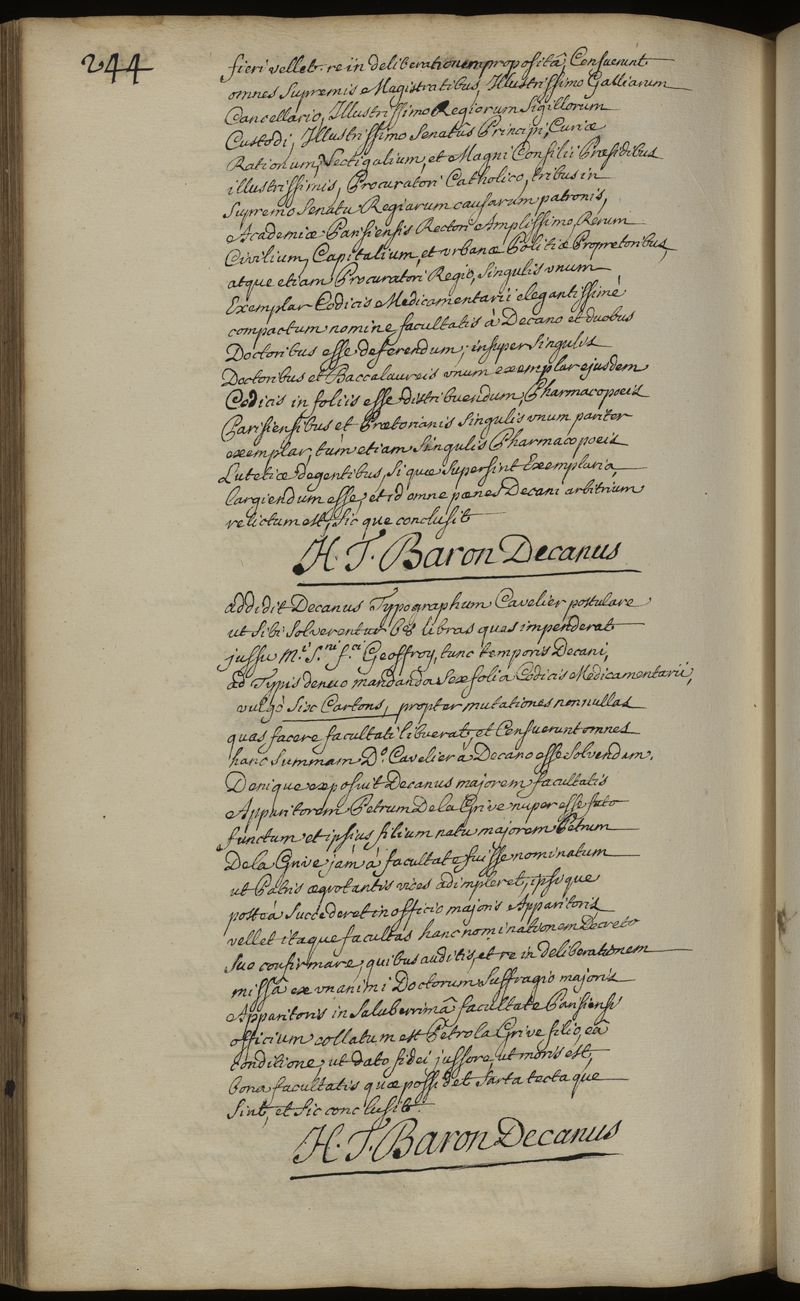 244
fieri vellet. re in deliberationem propositâ, Censuerunt
omnes Supremis Magistratibus, Illustrissimo Galliarum
Cancellario, Illustrissimo Regiorum Sigillorum
Custodi, Illustrissimo Senatûs Principi, Curiæ
Rationum, Vectigalium, et Magni Consilii Præsidibus
illustrissimis, Procuratori Catholico, tribus in
Supremo Senatu Regiarum causarum patronis,
Academiæ Parisiensis Rectori Amplissimo, Rerum
Civilium, Capitalium, et urbanæ Politiæ Propretoribus,
atque etiam Procuratori Regio, Singulis unum
Exemplar Codicis Medicamentarii elegantissimè
compactum nomine facultatis à Decano et duobus
Doctoribus esse deferendum; insuper Singulis
Doctoribus et Baccalaureis unum exemplar ejusdem
Codicis in foliis esse distribuendum, Pharmacopoeis
Parisiensibus et Prætorianis Singulis unum pariter
exemplar; tùm etiam Singulis Pharmacopoeis
Lutetiæ degentibus, Si quæ Supersint Exemplaria,
largiendum esse; et id omne pœnes Decani arbitrium
relictum est, Sic que conclusit
H. T. Baron Decanus
addidit Decanus Typographum Cavelier postulare
ut sibi Solverentur 68 libras quas impenderat
jussu M.i S.ni f.ci Geoffroy, tunc temporis Decani,
ad Typis denuo mandanda Sex folia Codicis Medicamentarii,
vulgò Six Cartons, propter mutationes nonnullas
quas facere facultati libuerat, et Censuerunt omnes
hanc Summam D.o Cavelier à Decano esse Solvendam.
Denique exposuit Decanus majorem facultatis
Apparitorem Petrum De la Grive nuper esse fato
functum et ipsius filium natu majorem Petrum
De la Grive jàm à facultate fuisse nominatum
ut Patris ægrotantis vices adimpleret, ipsique
posteà Succederet in officio majoris Apparitoris
vellet itaque facultas hanc nominationem Decreto
Suo confirmare; quibus auditis, et re in deliberationem
missâ ex unanimi Doctorum Suffragio majoris
Apparitoris in Saluberrimâ facultate Parisiensi
officium collatum est Petro la Grive filio, eâ
conditione, ut dato fidei jussore, ut moris est,
bona facultatis quæ possidet Sarta tecta que
Sint, et Sic conclusit.
H. T. Baron Decanus